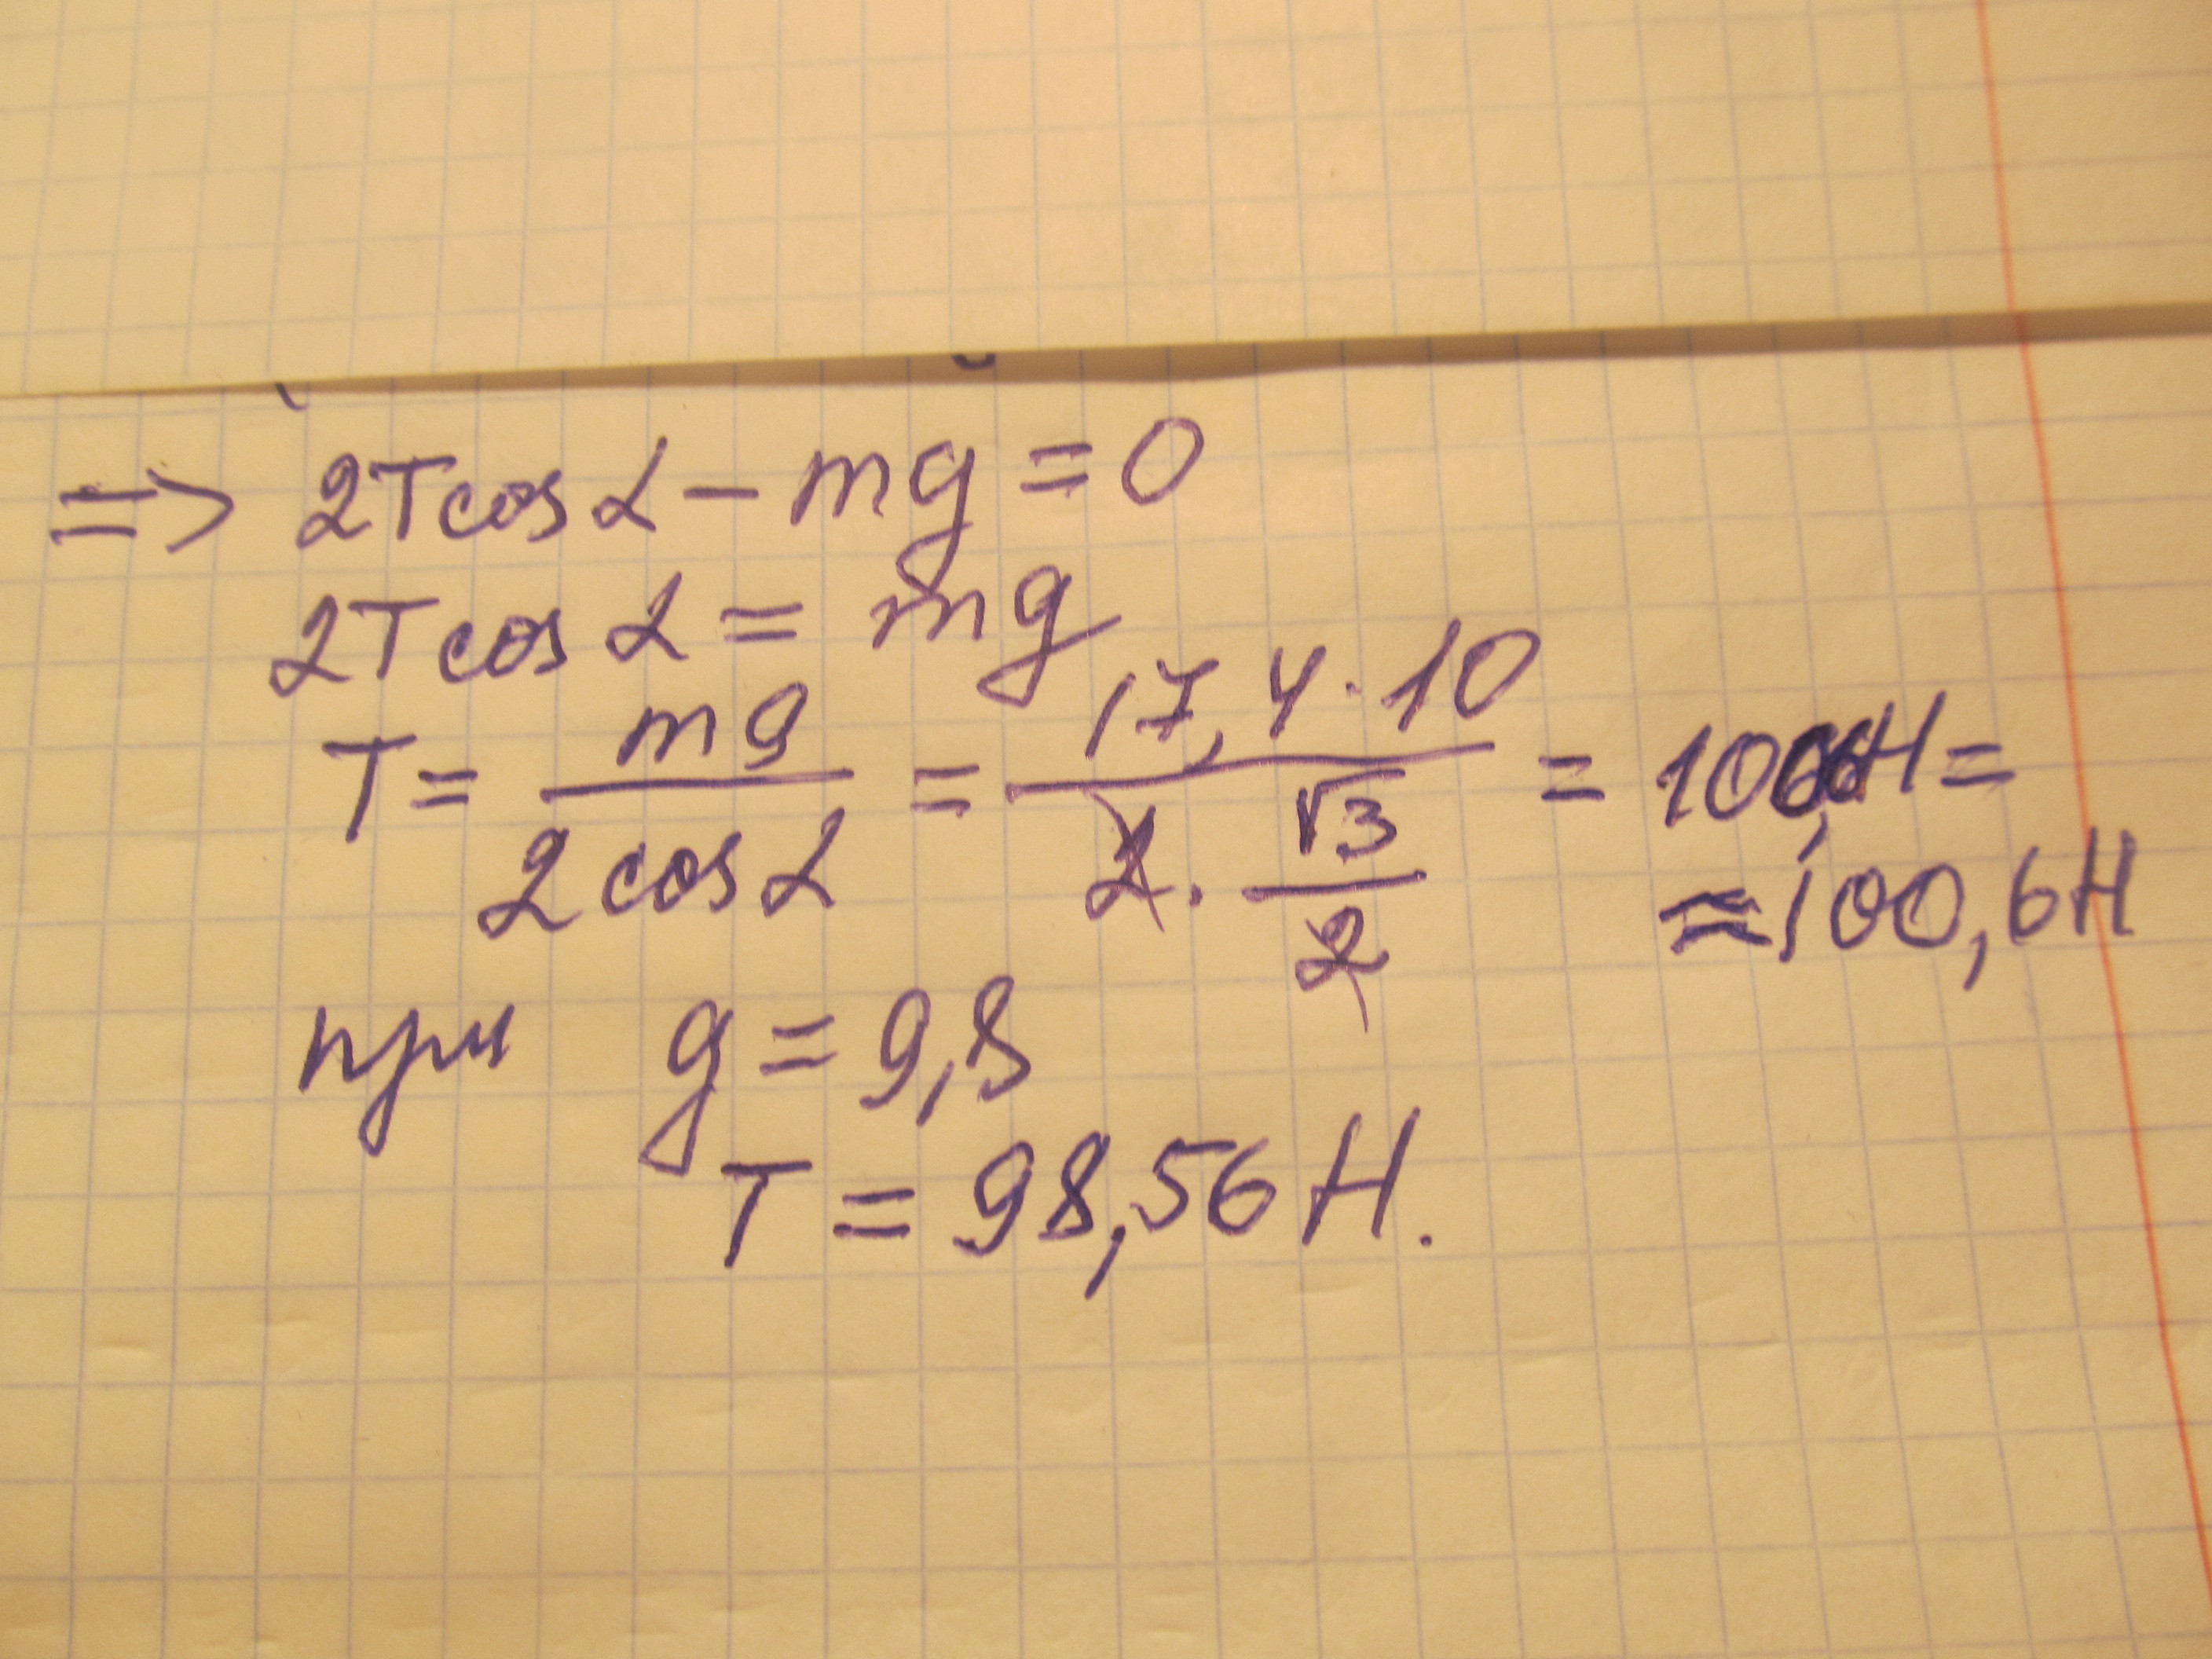 => 2Tcos α - mg = 0
2Tcos α = mg
T = mg / 2 cos α = 17,4 · 10 / 2 · √3 / 2 = H =
≈ 100,6 H
при g = 9,8
T = 98,56 H.